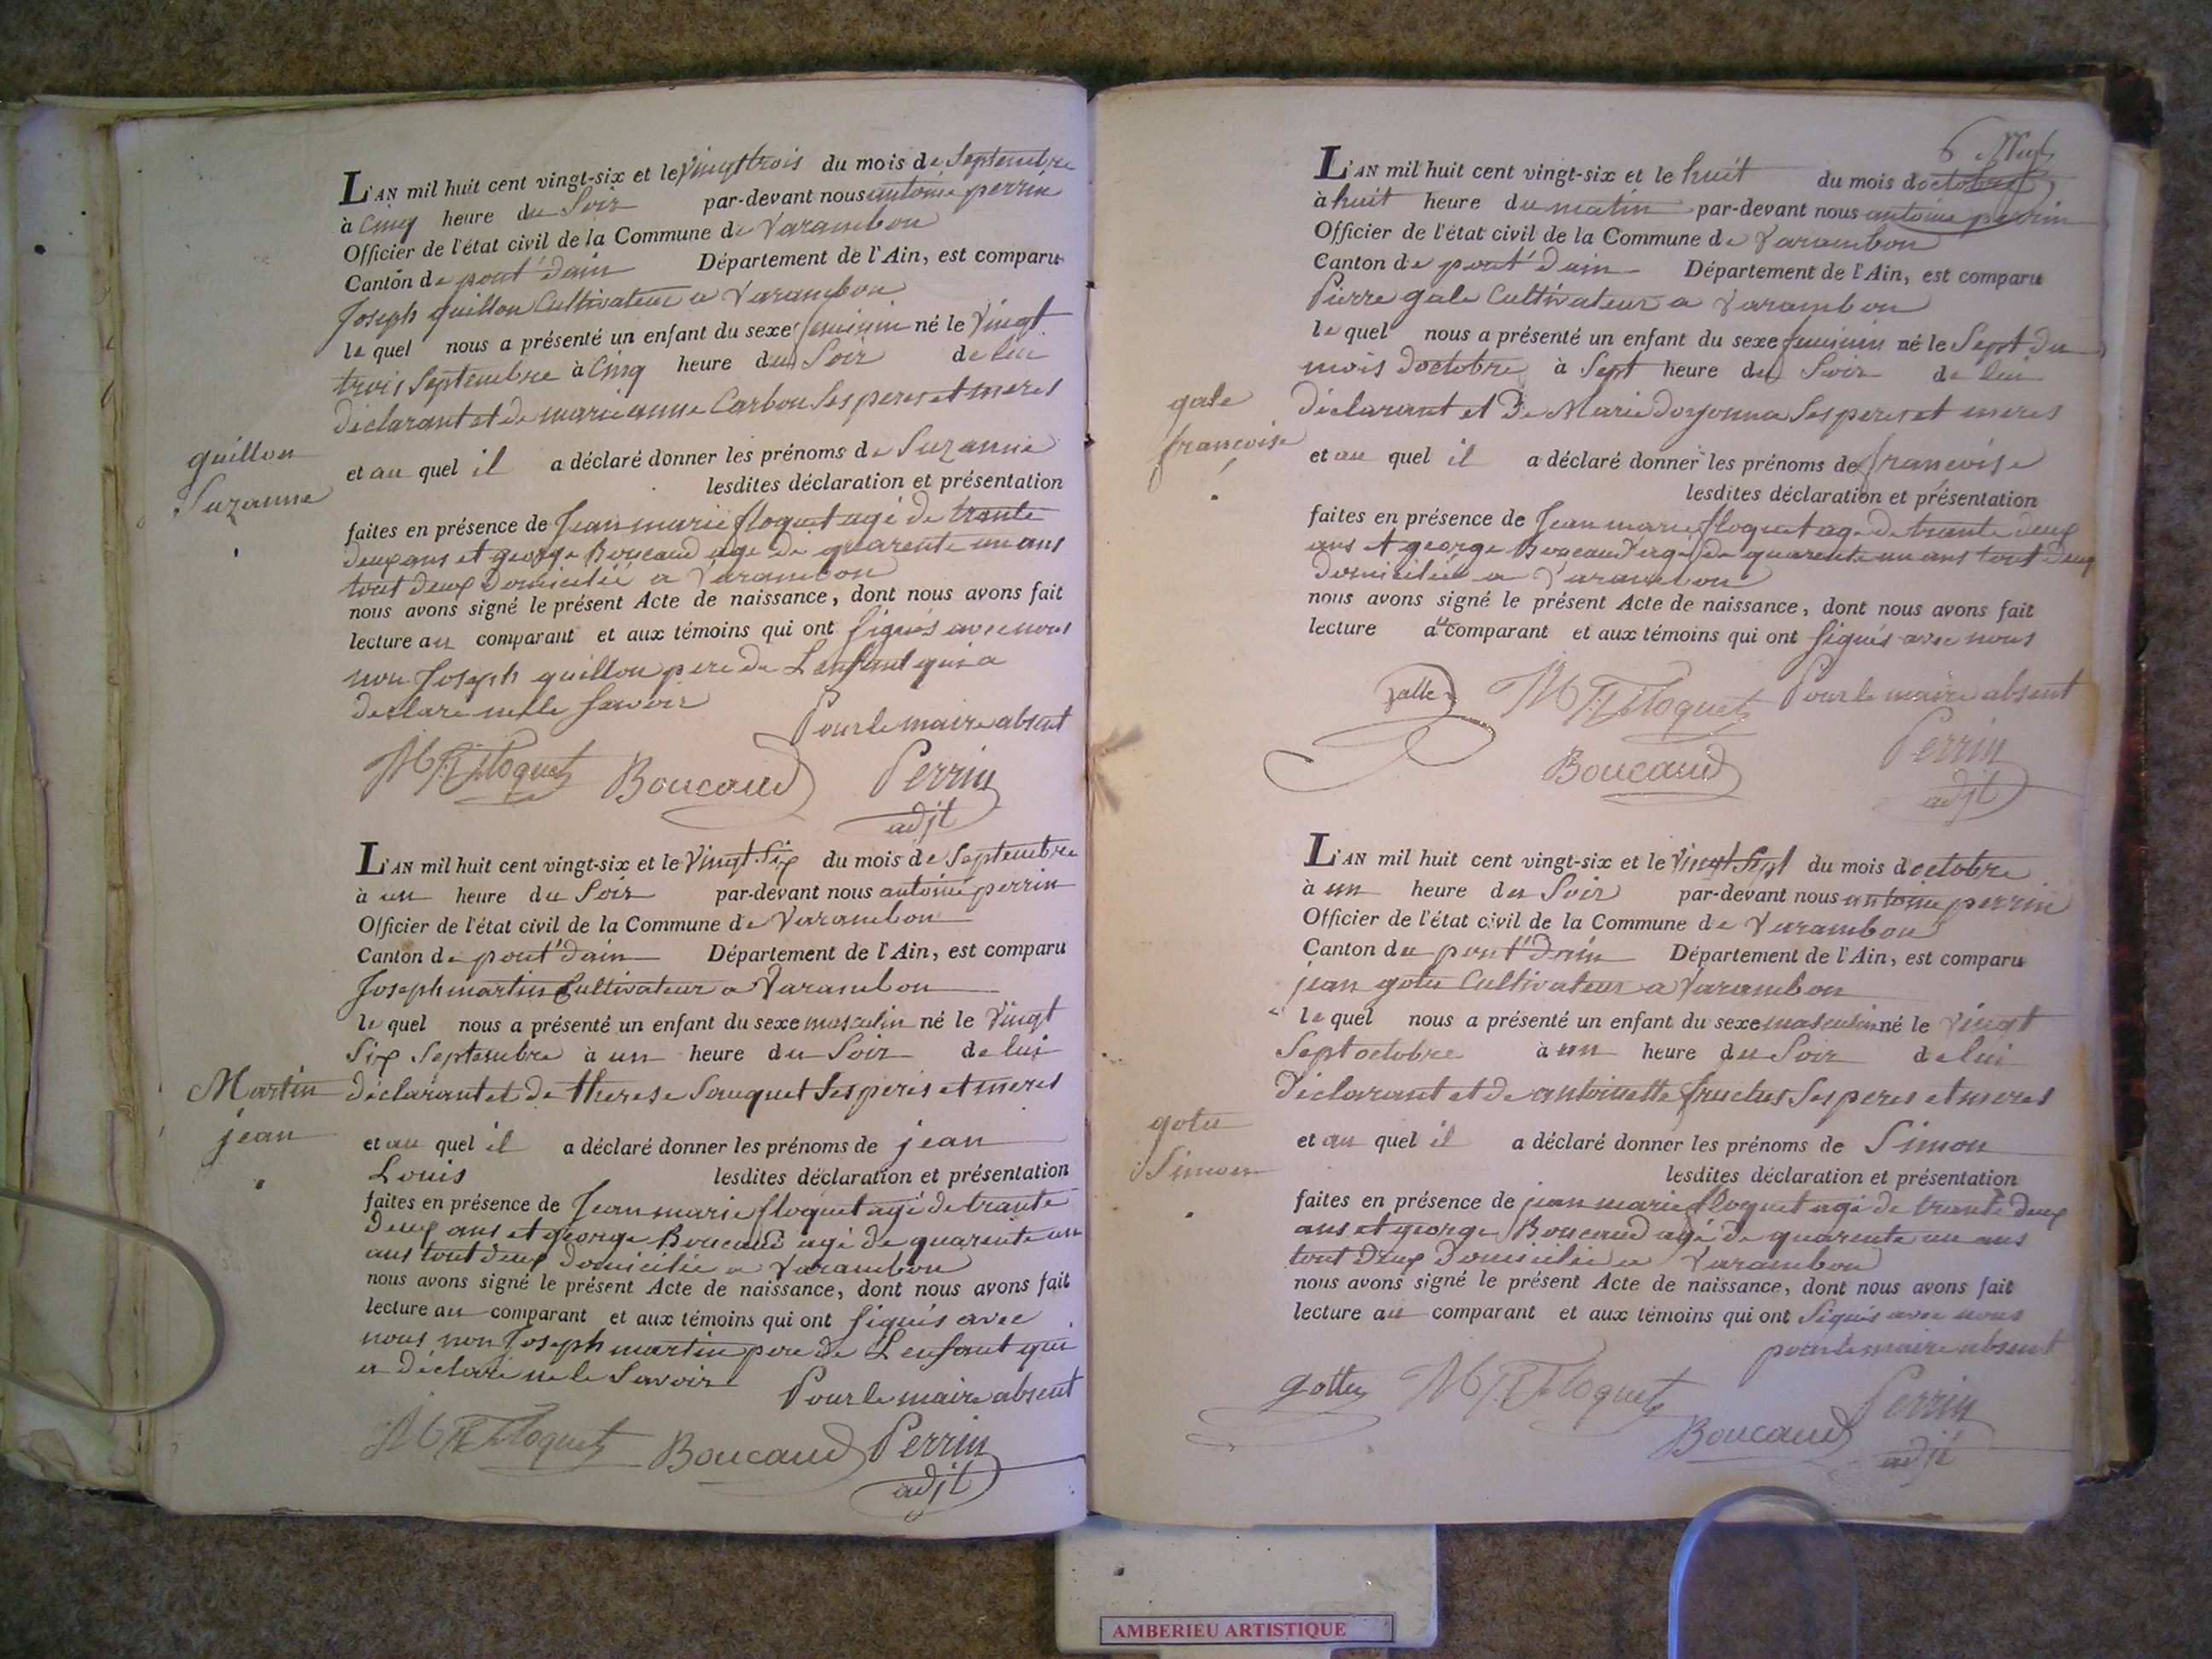 L'AN mil huit cent vingt-six et le vingt trois du mois de Septembre
à Cinq heure du Soir par-devant nous antoine perrin
Officier de l'état civil de la Commune de Varambon
Canton de pont d'ain Département de l'Ain, est comparu
Joseph guillon Cultivateur a Varambon
le quel nous a présenté un enfant du sexe feminin né le Vingt
trois Septembre à Cinq heure du Soir de lui
déclarant et de marie anne Carbon Ses peres et meres
guillon
Suzanne
et au quel il a déclaré donner les prénoms de Suzanne
lesdites déclaration et présentation
faites en présence de Jean marie floquet agé de trante
deux ans et george Boucaud agé de quarente un ans
tout deux Domicilié a Varambon
nous avons signé le présent Acte de naissance, dont nous avons fait
lecture au comparant et aux témoins qui ont Signés avec nous
non Joseph guillon pere de L'enfant qui a
declaré ne le Savoir
Pour le maire absent
Floquet Boucaud Perrin
adjt
L'AN mil huit cent vingt-six et le Vingt Six du mois de Septembre
à un heure du Soir par-devant nous antoine perrin
Officier de l'état civil de la Commune de Varambon
Canton de pont d'ain Département de l'Ain, est comparu
Joseph martin Cultivateur a Varambon
le quel nous a présenté un enfant du sexe masculin né le Vingt
Six Septembre à un heure du Soir de lui
Martin
jean
déclarant et de therese Souquet Ses peres et meres
et au quel il a déclaré donner les prénoms de jean
Louis lesdites déclaration et présentation
faites en présence de Jean marie floquet agé de trante
Deux ans et george Boucaud agé de quarente un
ans tout deux domicilié a Varambon
nous avons signé le présent Acte de naissance, dont nous avons fait
lecture au comparant et aux témoins qui ont Signés avec
nous non Joseph martin pere de L'enfant qui
a déclaré ne le Savoir
Pour le maire absent
Floquet Boucaud Perrin
adjt
6
L'AN mil huit cent vingt-six et le huit du mois doctobre
à huit heure du matin par-devant nous antoine perrin
Officier de l'état civil de la Commune de Varambon
Canton de pont d'ain Département de l'Ain, est comparu
Pierre gale Cultivateur a Varambon
le quel nous a présenté un enfant du sexe feminin né le Sept du
mois doctobre à Sept heure du Soir de lui
gale
françoise
déclarant et De Marie doyonna Ses peres et meres
et au quel il a déclaré donner les prénoms de françoise
lesdites déclaration et présentation
faites en présence de Jean marie floquet age de trante deux
ans et george Boucaud agé de quarente un ans tout deux
domicilié a Varambon
nous avons signé le présent Acte de naissance, dont nous avons fait
lecture au comparant et aux témoins qui ont Signés avec nous
galle Floquet Pour le maire absent
Boucaud Perrin
adjt
L'AN mil huit cent vingt-six et le Vingt Sept du mois doctobre
à un heure du Soir par-devant nous antoine perrin
Officier de l'état civil de la Commune de Varambon
Canton du pont d'ain Département de l'Ain, est comparu
jean gotu Cultivateur a Varambon
le quel nous a présenté un enfant du sexe masculin né le Vingt
Sept octobre à un heure du Soir de lui
Déclarant et de antoinette fructus Ses peres et meres
gotu
Simon
et au quel il a déclaré donner les prénoms de Simon
lesdites déclaration et présentation
faites en présence de jean marie floquet agé de trante deux
ans et george Boucaud agé de quarente un ans
tout deux Domicilié a Varambon
nous avons signé le présent Acte de naissance, dont nous avons fait
lecture au comparant et aux témoins qui ont Signés avec nous
pour le maire absent
Floquet Perrin
Boucaud adjt
AMBERIEU ARTISTIQUE